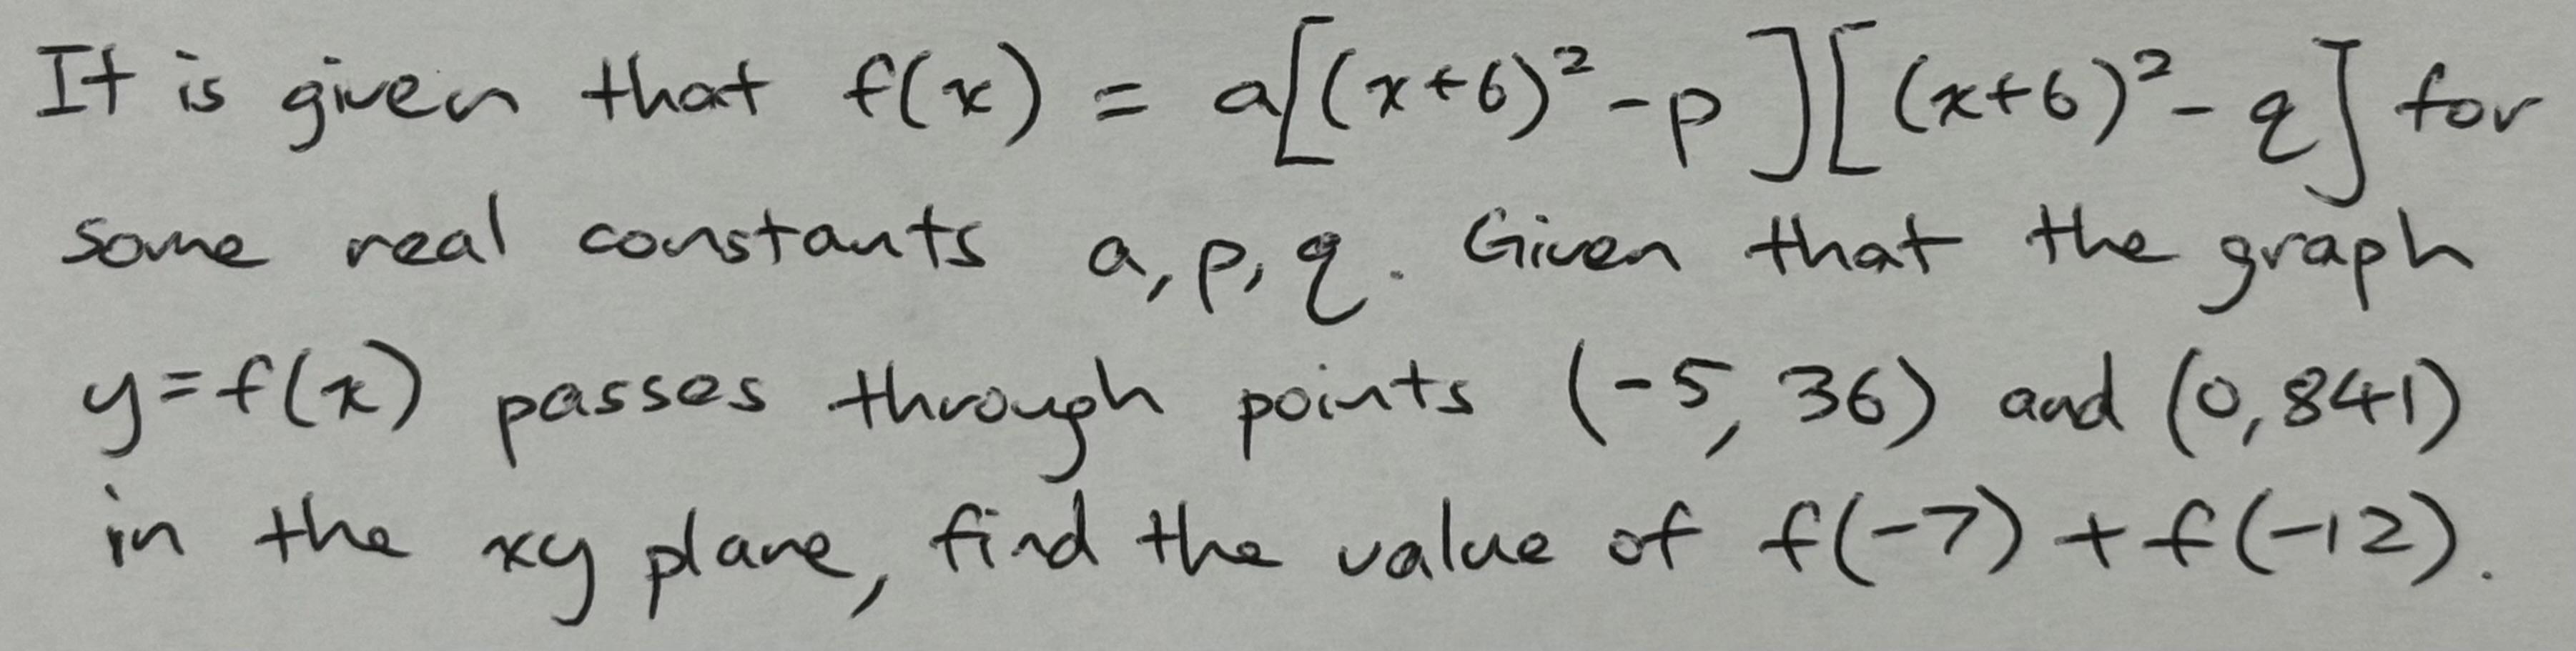 It is given that f(x) = a[(x+6)²-p][(x+6)²-q] for
some real constants a, p, q. Given that the graph
y=f(x) passes through points (-5, 36) and (0, 841)
in the xy plane, find the value of f(-7) + f(-12).